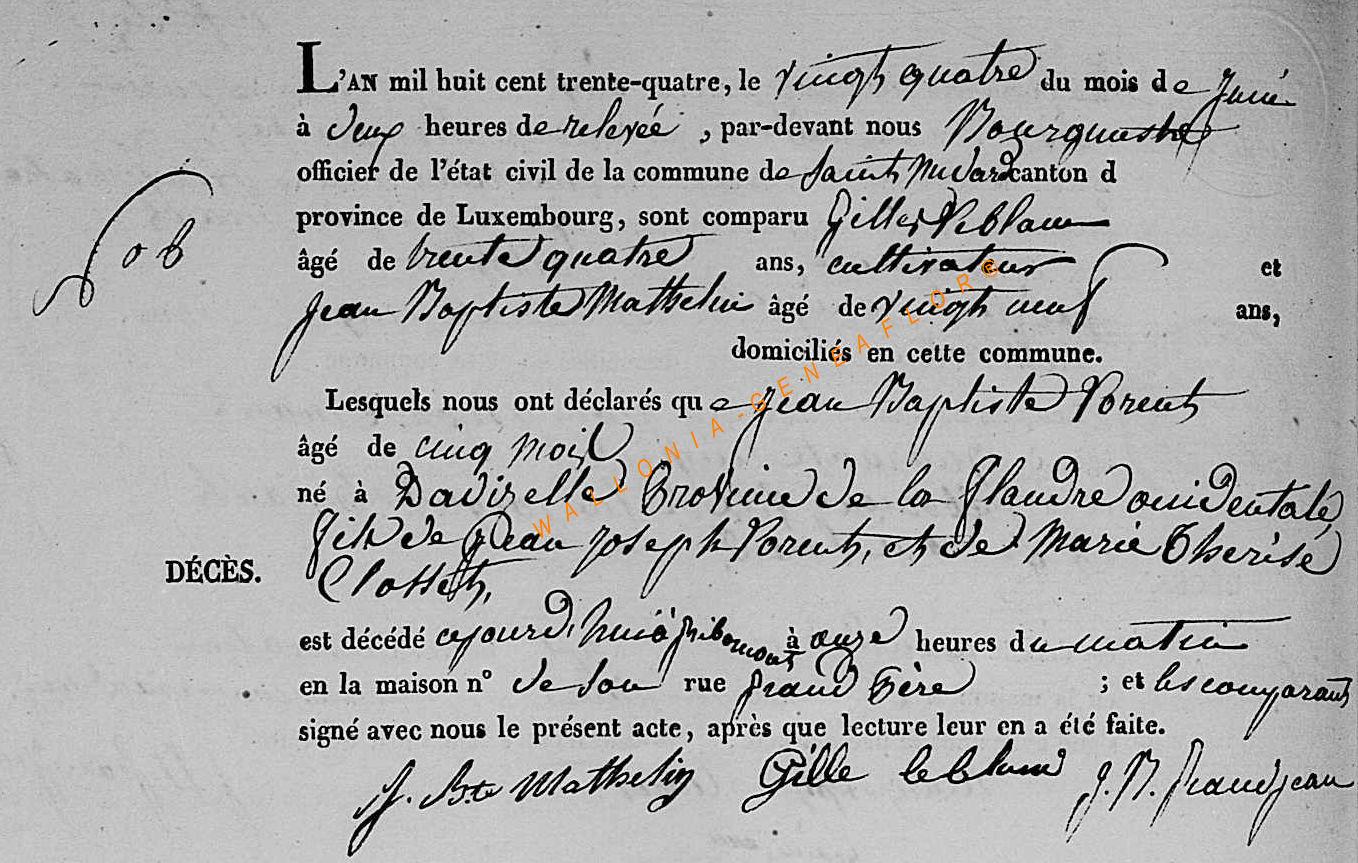 L'AN mil huit cent trente-quatre, le vingt quatre du mois de juin
à deux heures de relevée , par-devant nous Bourguestre
officier de l'état civil de la commune de Saint Medard canton d
province de Luxembourg, sont comparu Gilles Leblanc
ob
âgé de trente quatre ans, cultivateur et
Jean Baptiste Mathelin âgé de vingt neuf ans,
domiciliés en cette commune.
Lesquels nous ont déclarés que Jean Baptiste Porent
âgé de cinq mois
né à Dadizelle Province de la flandre occidentale
fils de Jean Joseph Porent, et de Marie Therese
DÉCÈS.
Closset,
est décédé cejourd'hui à fribomont à onze heures du matin
en la maison n° de son rue grand Père ; et les comparant
signé avec nous le présent acte, après que lecture leur en a été faite.
J. Bte Mathelin Gille leblanc J. N. Grandjean
WALLONIA-GENEAFLORE